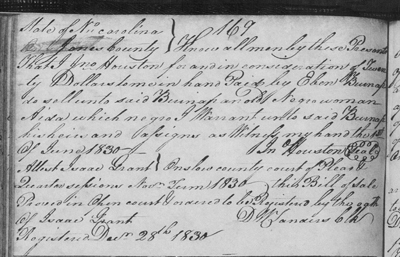 State of No. carolina } 167
Jones County } Know all men by these Presents
that I Jno Houston for and in consideration of Twen
ty Dollars to me in hand Paid by Eben Burnap
do sell unto said Burnap an old Negro woman
Aida, which negro I Warrant unto said Burnap
his heirs and assigns as Witness my hand the
Of June 1830 Jn Houston (Seal)
Attest Isaac Grant } Onslow county court of Pleas &
Quarter sessions Novr Term 1830 this Bill of Sale
Proved in Open court ordered to be Registered by the oath
Of Isaac Grant D W Sanders Clk
Registered Decr 28th 1830